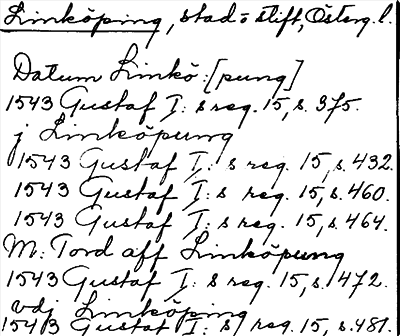 Linköping, stad o stift, Österg. l.
Datum Linkö:[pung]
1543 Gustaf I:s reg. 15, s. 375.
j Linköpung
1543 Gustaf I:s reg. 15, s. 432.
1543 Gustaf I:s reg. 15, s. 460.
1543 Gustaf I:s reg. 15, s. 464.
M: Tord aff Linköpung
1543 Gustaf I:s reg. 15, s. 472.
vdj Linköping
1543 Gustaf I:s reg. 15, s. 481.